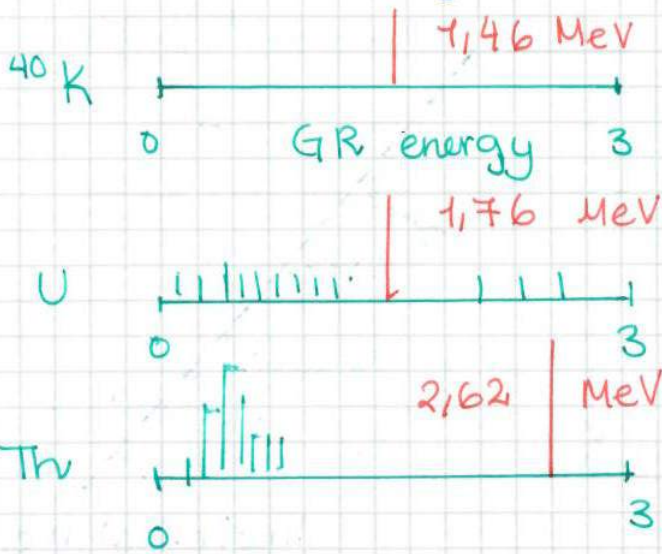 1,46 MeV
⁴⁰K
0 GR energy 3
1,76 MeV
U
0 3
2,62 MeV
Th
0 3